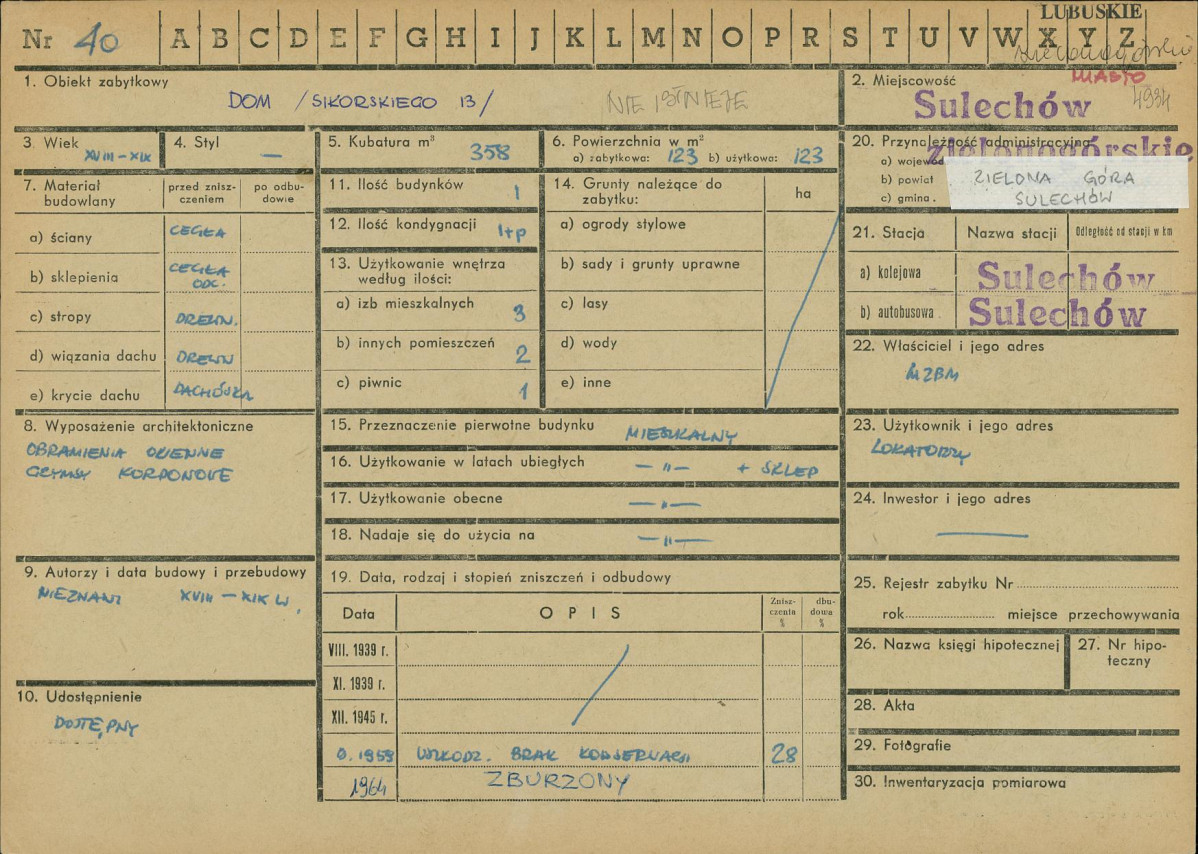 LUBUSKIE
Nr 40 A B C D E F G H I J K L M N O P R S T U V W X Y Z
1. Obiekt zabytkowy
DOM /SIKORSKIEGO 13/ NIE ISTNIEJE
2. Miejscowość MIASTO 4934
Sulechów
3 Wiek XVIII-XIX
4. Styl —
5. Kubatura m³ 358
6. Powierzchnia w m²
a) zabytkowa: 123 b) użytkowa: 123
20. Przynależność administracyjna
zielonogórskie
a) wojewód
b) powiat ZIELONA GÓRA
c) gmina. SULECHÓW
7. Materiał budowlany
przed znisz-
czeniem
po odbu-
dowie
a) ściany CEGŁA
b) sklepienia CEGŁA
ODC.
c) stropy DREWN.
d) wiązania dachu DREWN
e) krycie dachu DACHÓWKA
11. Ilość budynków 1
12. Ilość kondygnacji I+p
13. Użytkowanie wnętrza
według ilości:
a) izb mieszkalnych 3
b) innych pomieszczeń 2
c) piwnic 1
14. Grunty należące do
zabytku:
ha
a) ogrody stylowe
b) sady i grunty uprawne
c) lasy
d) wody
e) inne
21. Stacja Nazwa stacji Odległość od stacji w km
a) kolejowa Sulechów
b) autobusowa Sulechów
22. Właściciel i jego adres
MZBM
8. Wyposażenie architektoniczne
OBRAMIENIA OKIENNE
GZYMSY KORDONOWE
15. Przeznaczenie pierwotne budynku MIESZKALNY
16. Użytkowanie w latach ubiegłych —"— + SKLEP
17. Użytkowanie obecne —"—
18. Nadaje się do użycia na —"—
23. Użytkownik i jego adres
LOKATORZY
24. Inwestor i jego adres
—
9. Autorzy i data budowy i przebudowy
NIEZNANI XVIII-XIX W.
10. Udostępnienie
DOSTĘPNY
19. Data, rodzaj i stopień zniszczeń i odbudowy
Data OPIS
Znisz-
czenia
%
dbu-
dowa
%
VIII. 1939 r.
XI. 1939 r.
XII. 1945 r.
0.1959 USZKODZ. BRAK KONSERWACJI 28
1964 ZBURZONY
25. Rejestr zabytku Nr
rok miejsce przechowywania
26. Nazwa księgi hipotecznej
27. Nr hipo-
teczny
28. Akta
29. Fotografie
30. Inwentaryzacja pomiarowa